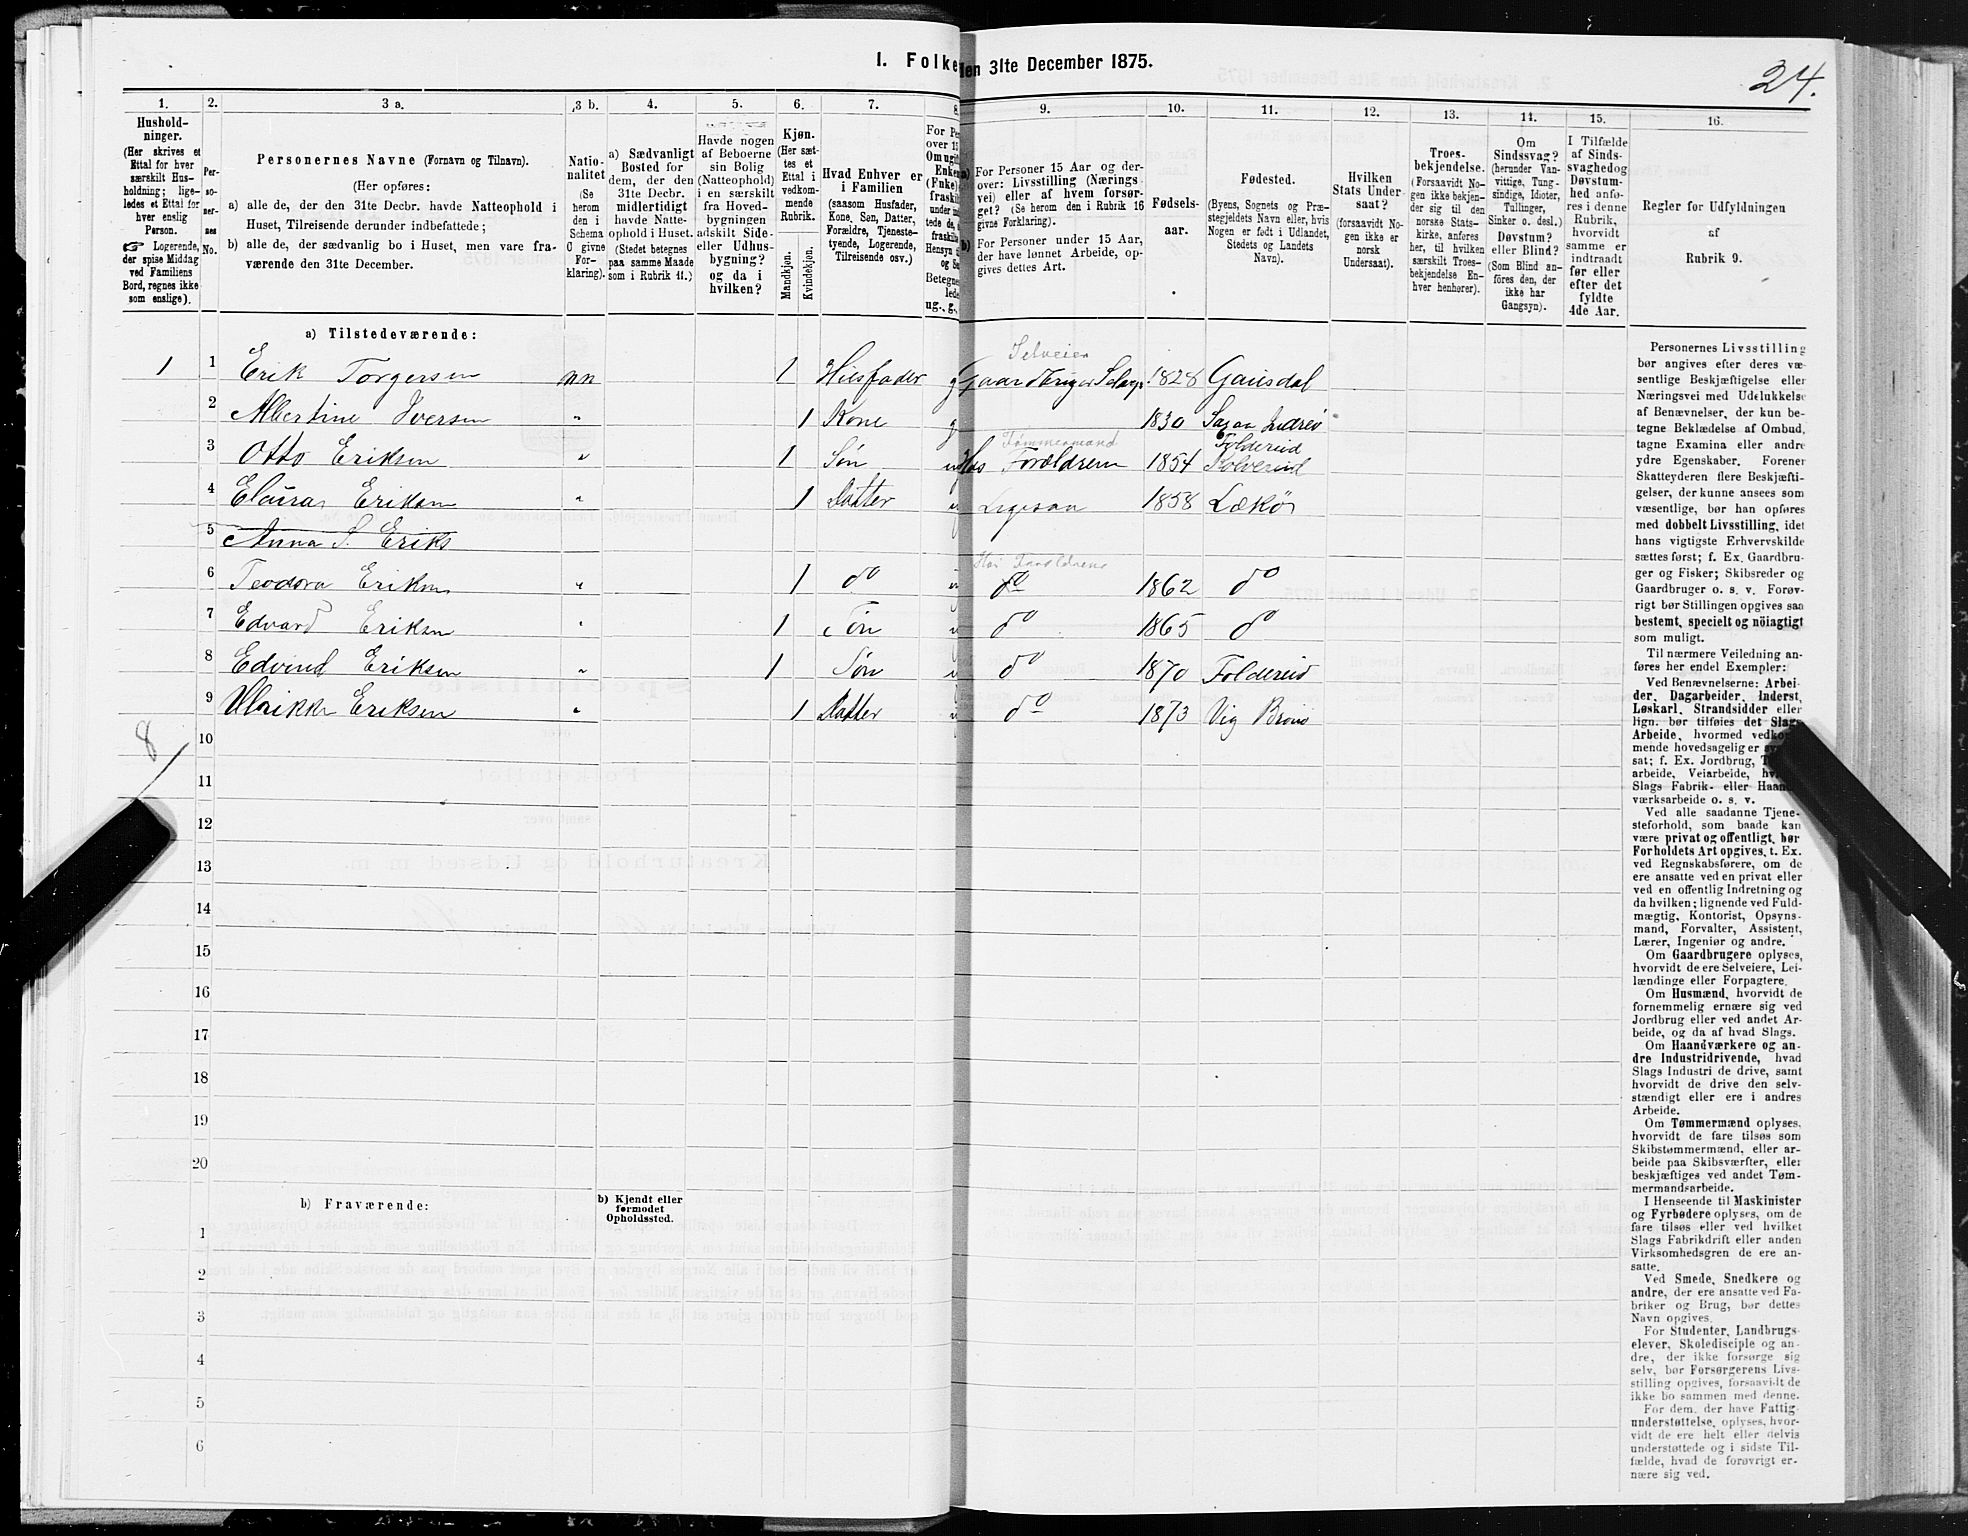 I. Folke
den 31te December 1875.
24.
1.
2.
3 a.
3 b.
4.
5.
6.
7.
8.
9.
10.
11.
12.
13.
14.
15.
16.
Hushold-
ninger.
(Her skrives et
Ettal for hver
særskilt Hus-
holdning; lige-
ledes et Ettal for
hver enslig
Person.
☞ Logerende,
der spise Middag
ved Familiens
Bord, regnes ikke
som enslige).
Per-
so-
ner-
nes
No.
Personernes Navne (Fornavn og Tilnavn).
(Her opføres:
a) alle de, der den 31te Decbr. havde Natteophold i
Huset, Tilreisende derunder indbefattede;
b) alle de, der sædvanlig bo i Huset, men vare fra-
værende den 31te December.
Natio-
nalitet
(Se
herom
den i
Schema
C givne
For-
klaring).
a) Sædvanligt
Bosted for
dem, der den
31te Decbr.
midlertidigt
havde Natte-
ophold i Huset.
(Stedet betegnes
paa samme Maade
som i Rubrik 11.)
Havde nogen
af Beboerne
sin Bolig
(Natteophold)
i en særskilt
fra Hoved-
bygningen
adskilt Side-
eller Udhus-
bygning?
og da i
hvilken?
Kjøn.
(Her sæt-
tes et
Ettal i
vedkom-
mende
Rubrik.
Mandkjøn.
Kvindekjøn.
Hvad Enhver er
i Familien
(saasom Husfader,
Kone, Søn, Datter,
Forældre, Tjeneste-
tyende, Logerende,
Tilreisende osv.)
For Pe
over 15
Om ugift
Enke
(Enke)
fraskil
under
tede de,
fraskil
Hensyn
og Se
Betegne
lede
ug., g.,
a) For Personer 15 Aar og der-
over: Livsstilling (Nærings-
vei) eller af hvem forsør-
get? (Se herom den i Rubrik 16
givne Forklaring).
b) For Personer under 15 Aar,
der have lønnet Arbeide, op-
gives dettes Art.
Fødsels-
aar.
Fødested.
(Byens, Sognets og Præ-
stegjeldets Navn eller, hvis
Nogen er født i Udlandet,
Stedets og Landets
Navn).
Hvilken
Stats Under-
saat?
(forsaavidt No-
gen ikke er
norsk
Undersaat).
Troes-
bekjendelse.
(Forsaavidt No-
gen ikke bekjen-
der sig til den
norske Stats-
kirke, anføres
her, til hvilken
særskilt Troes-
bekjendelse En-
hver henhører).
Om
Sindssvag?
(herunder Van-
vittige, Tung-
sindige, Idioter,
Tullinger,
Sinker o. desl.)
Døvstum?
eller Blind?
(Som Blind an-
föres den, der
ikke har
Gangsyn).
I Tilfælde
af Sinds-
svaghed og
Døvstum-
hed anfø-
res i denne
Rubrik,
hvorvidt
samme er
indtraadt
før eller
efter det
fyldte
4de Aar.
Regler for Udfyldningen
af
Rubrik 9.
a) Tilstedeværende:
Selveier
1 1 Erik Torgersen nn 1 Husfader g Gaardbruger 1828 Gausdal
2 Albertine Iversen " 1 Kone g 1830
Tømmermand Foldereid
3 Otto Eriksen " 1 Søn u Hos Forældrene 1854 Kolvereid
4 Elaura Eriksen " 1 Datter u Ligesaa 1858 Lekø
5 Anna S. Eriks
Hos Forældrene
6 Teodora Eriksen " 1 do do 1862 do
7 Edvard Eriksen " 1 Søn do 1865 do
8 Edvind Eriksen " 1 Søn do 1870 Foldereid
9 Ulrikke Eriksen " 1 Datter do 1873 Vig
8
10
11
12
13
14
15
16
17
18
19
20
b) Fraværende:
b) Kjendt eller
formodet
Opholdssted.
1
2
3
4
5
6
Personernes Livsstilling
bør angives efter deres væ-
sentlige Beskjæftigelse eller
Næringsvei med Udelukkelse
af Benævnelser, der kun be-
tegne Beklædelse af Ombud,
tagne Examina eller andre
ydre Egenskaber. Forener
Skatteyderen flere Beskjæfti-
gelser, der kunne ansees som
væsentlige, bør han opføres
med dobbelt Livsstilling, idet
hans vigtigste Erhvervskilde
sættes først; f. Ex. Gaardbru-
ger og Fisker; Skibsreder og
Gaardbruger o. s. v. Forøv-
rigt bør Stillingen opgives saa
bestemt, specielt og nöiagtigt
som muligt.
Til nærmere Veiledning an-
føres her endel Exempler:
Ved Benævnelserne: Arbei-
der, Dagarbeider, Inderst,
Løskarl, Strandsidder eller
lign. bør tilføies det Slags
Arbeide, hvormed vedkom-
mende hovedsagelig er
sat; f. Ex. Jordbrug,
arbeide, Veiarbeide,
Slags Fabrik- eller Haand-
værksarbeide o. s. v.
Ved alle saadanne Tjene-
steforhold, som baade kan
være privat og offentligt, bør
Forholdets Art opgives, t. Ex.
ved Regnskabsførere, om de
ere ansatte ved en privat eller
ved en offentlig Indretning og
da hvilken; lignende ved Fuld-
mægtig, Kontorist, Opsyns-
mand, Forvalter, Assistent,
Lærer, Ingeniør og andre.
Om Gaardbrugere oplyses,
hvorvidt de ere Selveiere, Lei-
lændinge eller Forpagtere.
Om Husmænd, hvorvidt de
fornemmelig ernære sig ved
Jordbrug eller ved andet Ar-
beide, og da af hvad Slags.
Om Haandværkere og an-
dre Industridrivende, hvad
Slags Industri de drive, samt
hvorvidt de drive den selv-
stændigt eller ere i andres
Arbeide.
Om Tømmermænd oplyses,
hvorvidt de fare tilsøs som
Skibstømmermænd, eller ar-
beide paa Skibsværfter, eller
beskjæftiges ved andet Tøm-
mermandsarbeide.
I Henseende til Maskinister
og Fyrbødere oplyses, om de
fare tilsøs eller ved hvilket
Slags Fabrikdrift eller anden
Virksomhedsgren de ere an-
satte.
Ved Smede, Snedkere og
andre, der ere ansatte ved Fa-
briker og Brug, bør dettes
Navn opgives.
For Studenter, Landbrugs-
elever, Skoledisciple og an-
dre, der ikke forsørge sig
selv, bør Forsørgerens Livs-
stilling opgives, forsaavidt de
ikke bo sammen med denne.
For dem, der have Fattig-
understøttelse, oplyses, hvor-
vidt de ere helt eller delvis
understøttede og i sidste Til-
fælde, hvad de forøvrigt er-
nære sig ved.